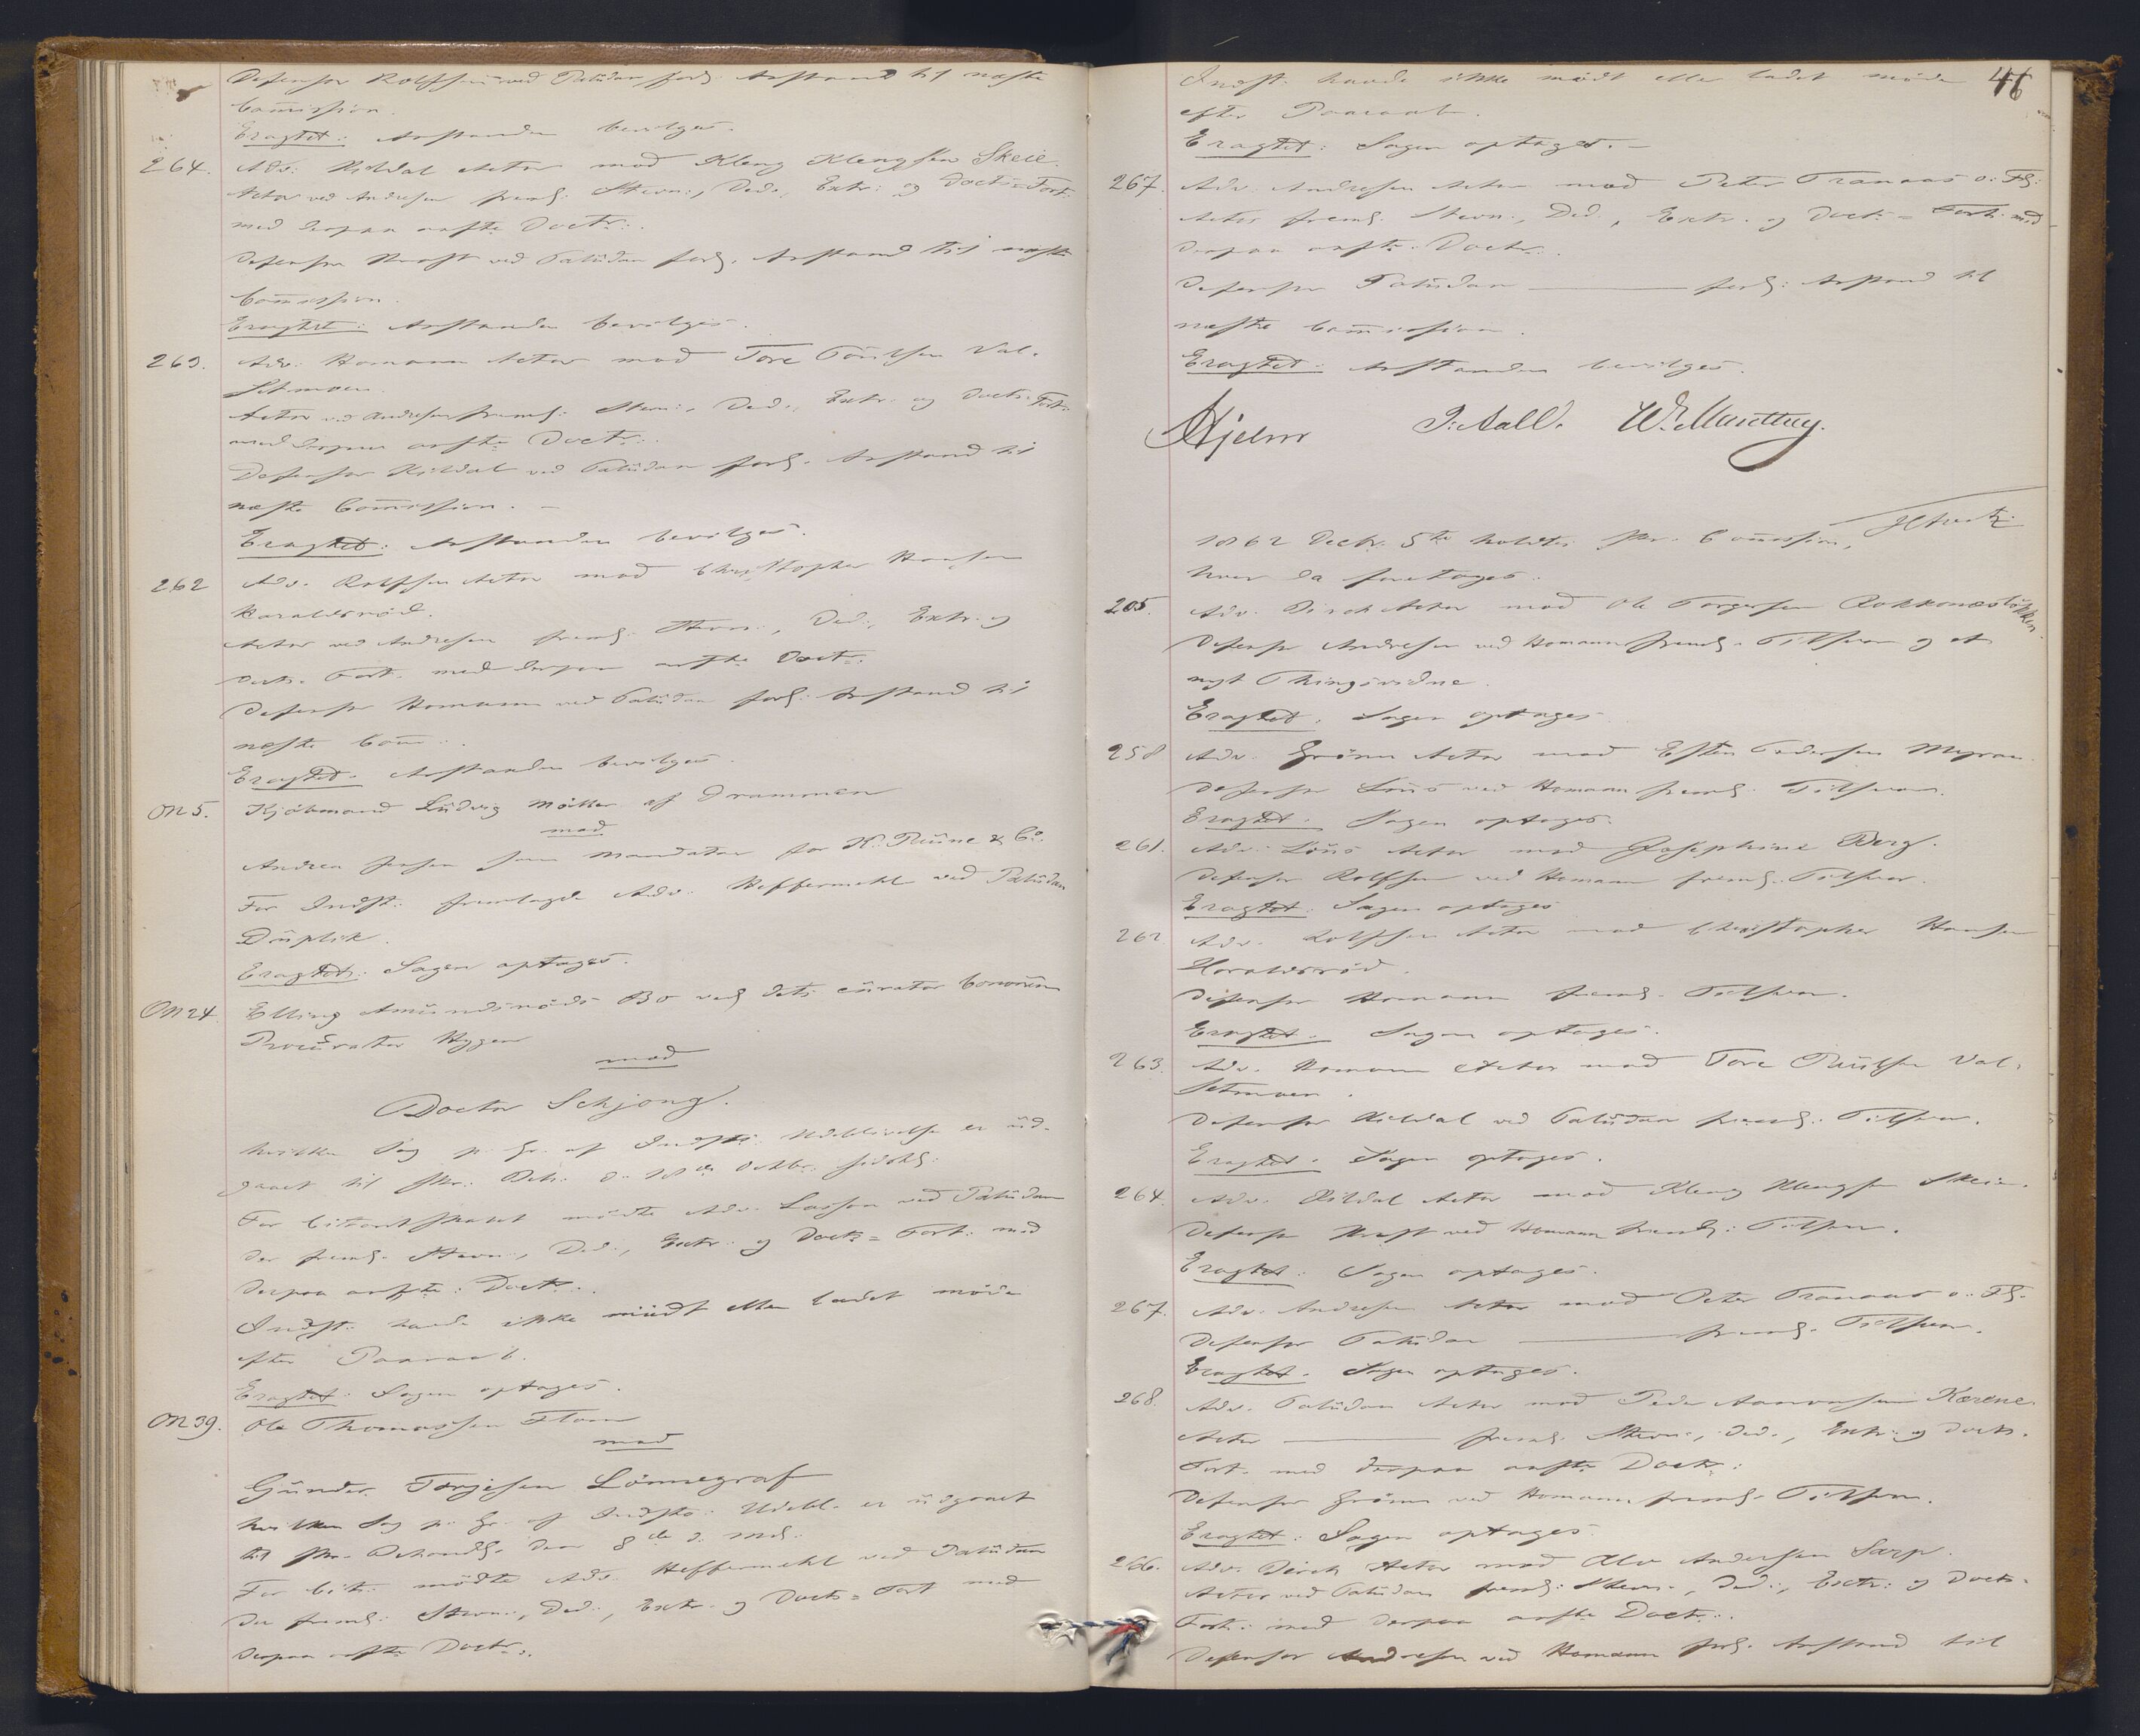 Defensor Rolfsen ved Paludan forl. Anstand til næste
Commission.
Eragtet: Anstanden bevilges.
264. Adv. Kildal Actor mod Kleng Klengsen Skeie.
Actor ved Andresen freml. Stevn:, Ded:, Extr: og Docts=Fort:
med derpaa anfte Doctr:.
Defensor Kraft ved Paludan forl. Anstand til næste
Commission.
Eragtet: Anstanden bevilges.
263. Adv. Homann Actor mod Tore Paulsen Val-
setmoen.
Actor ved Andresen freml: Stevn:, Ded:, Extr: og Docts=Fort:
med derpaa anfte Doctr:.
Defensor Kildal ved Paludan forl. Anstand til
næste Commission.-
Eragtet: Anstanden bevilges.
262 Adv. Rolfsen Actor mod Christopher Hansen
Haraldsröd.
Actor ved Andresen freml: Stevn:, Ded:, Extr: og
Docts. Fort. med derpaa anfte Doctr:
Defensor Homann ved Paludan forl: Anstand til
næste Com:.
Eragtet: Anstanden bevilges.
ON 5. Kjöbmand Ludvig Möller af Drammen
mod
Andrea Jensen som Mandatar for K. Rüne & Co.
For Indst: fremlagde Adv. Heffermehl ved Paludan
Duplik.
Eragtet: Sagen optages.
ON 24. Elling Amundsröds Bo ved dets curator bonorum
Procurator Hyggen
mod
Doctor Schjong.
hvilken Sag p. Gr. af Indsts: Udeblivelse er ud-
gaaet til skr. Beh. d. 18de Octbr. sidstl:
For Citantskabet mödte Adv. Lasson ved Paludan
der freml. Stevn:, Ded:, Extr: og Docts=Fort: med
derpaa anfte: Doctr:.
Indst: havde ikke mödt eller ladet möde
efter Paaraab.
Eragtet: Sagen optages.
ON 39. Ole Thomassen Flom
mod
Gunder Torjesen Lönnegraf
hvilken Sag p. Gr. af Indsts: Udebl. er udgaaet
til skr. Behandl. den 8de d. Md.
For Cit: mödte Adv. Heffermehl ved Paludan
der freml: Stevn:, Ded:, Extr. og Docts=Fort med
derpaa anfte Doctr:.
46
Indst: havde ikke mödt eller ladet möde
efter Paaraab.
Eragtet: Sagen optages.-
267. Adv. Andresen Actor mod Peter Tranaas o: Fl:
Actor freml. Stevn:, Ded:, Extr. og Docts=Fort: med
derpaa anfte: Doctr:.
Defensor Paludan ——— forl: Anstand til
næste Commission.
Eragtet: Anstanden bevilges.
Hjelm J. Aall. W. Manthey.
1862 Decbr. 5te holdtes skr. Commission,
hvor da foretoges.
205. Adv. Dirch Actor mod Ole Torgersen Rokkonæslökken.
Defensor Andresen ved Homann freml. Tilsvar og et
nyt Thingsvidne.
Eragtet: Sagen optages
258 Adv. Grönn Actor mod Esten Pedersen Myran.
Defensor Lous ved Homann freml. Tilsvar.
Eragtet: Sagen optages.
261. Adv. Lous Actor mod Josephine Berg.
Defensor Rolfsen ved Homann freml. Tilsvar.
Eragtet: Sagen optages
262. Adv. Rolfsen Actor mod Christopher Hansen
Haraldsröd.
Defensor Homann freml. Tilsvar.
Eragtet: Sagen optages.
263. Adv. Homann Actor mod Tore Paulsen Val-
setmoen.
Defensor Kildal ved Paludan freml: Tilsvar.
Eragtet: Sagen optages.
264. Adv. Kildal Actor mod Kleng Klengsen Skeie.
Defensor Kraft ved Homann freml: Tilsvar.
Eragtet: Sagen optages.
267. Adv. Andresen Actor mod Peter Tranaas o. Fl.
Defensor Paludan ——— freml. Tilsvar.
Eragtet. Sagen optages.
268. Adv. Paludan Actor mod Peder Aanonsen Kærene.
Actor ——— freml. Stevn:, Ded:, Extr. og Docts.
Fort. med derpaa anfte Doctr:
Defensor Grönn ved Homann freml. Tilsvar.
Eragtet: Sagen optages.
266. Adv. Dirch Actor mod Alv Andersen Sarp.
Actor ved Paludan freml: Stevn:, Ded:, Extr: og Docts.
Fort: med derpaa anfte Doctr:.
Defensor Andresen ved Homann forl. Anstand til